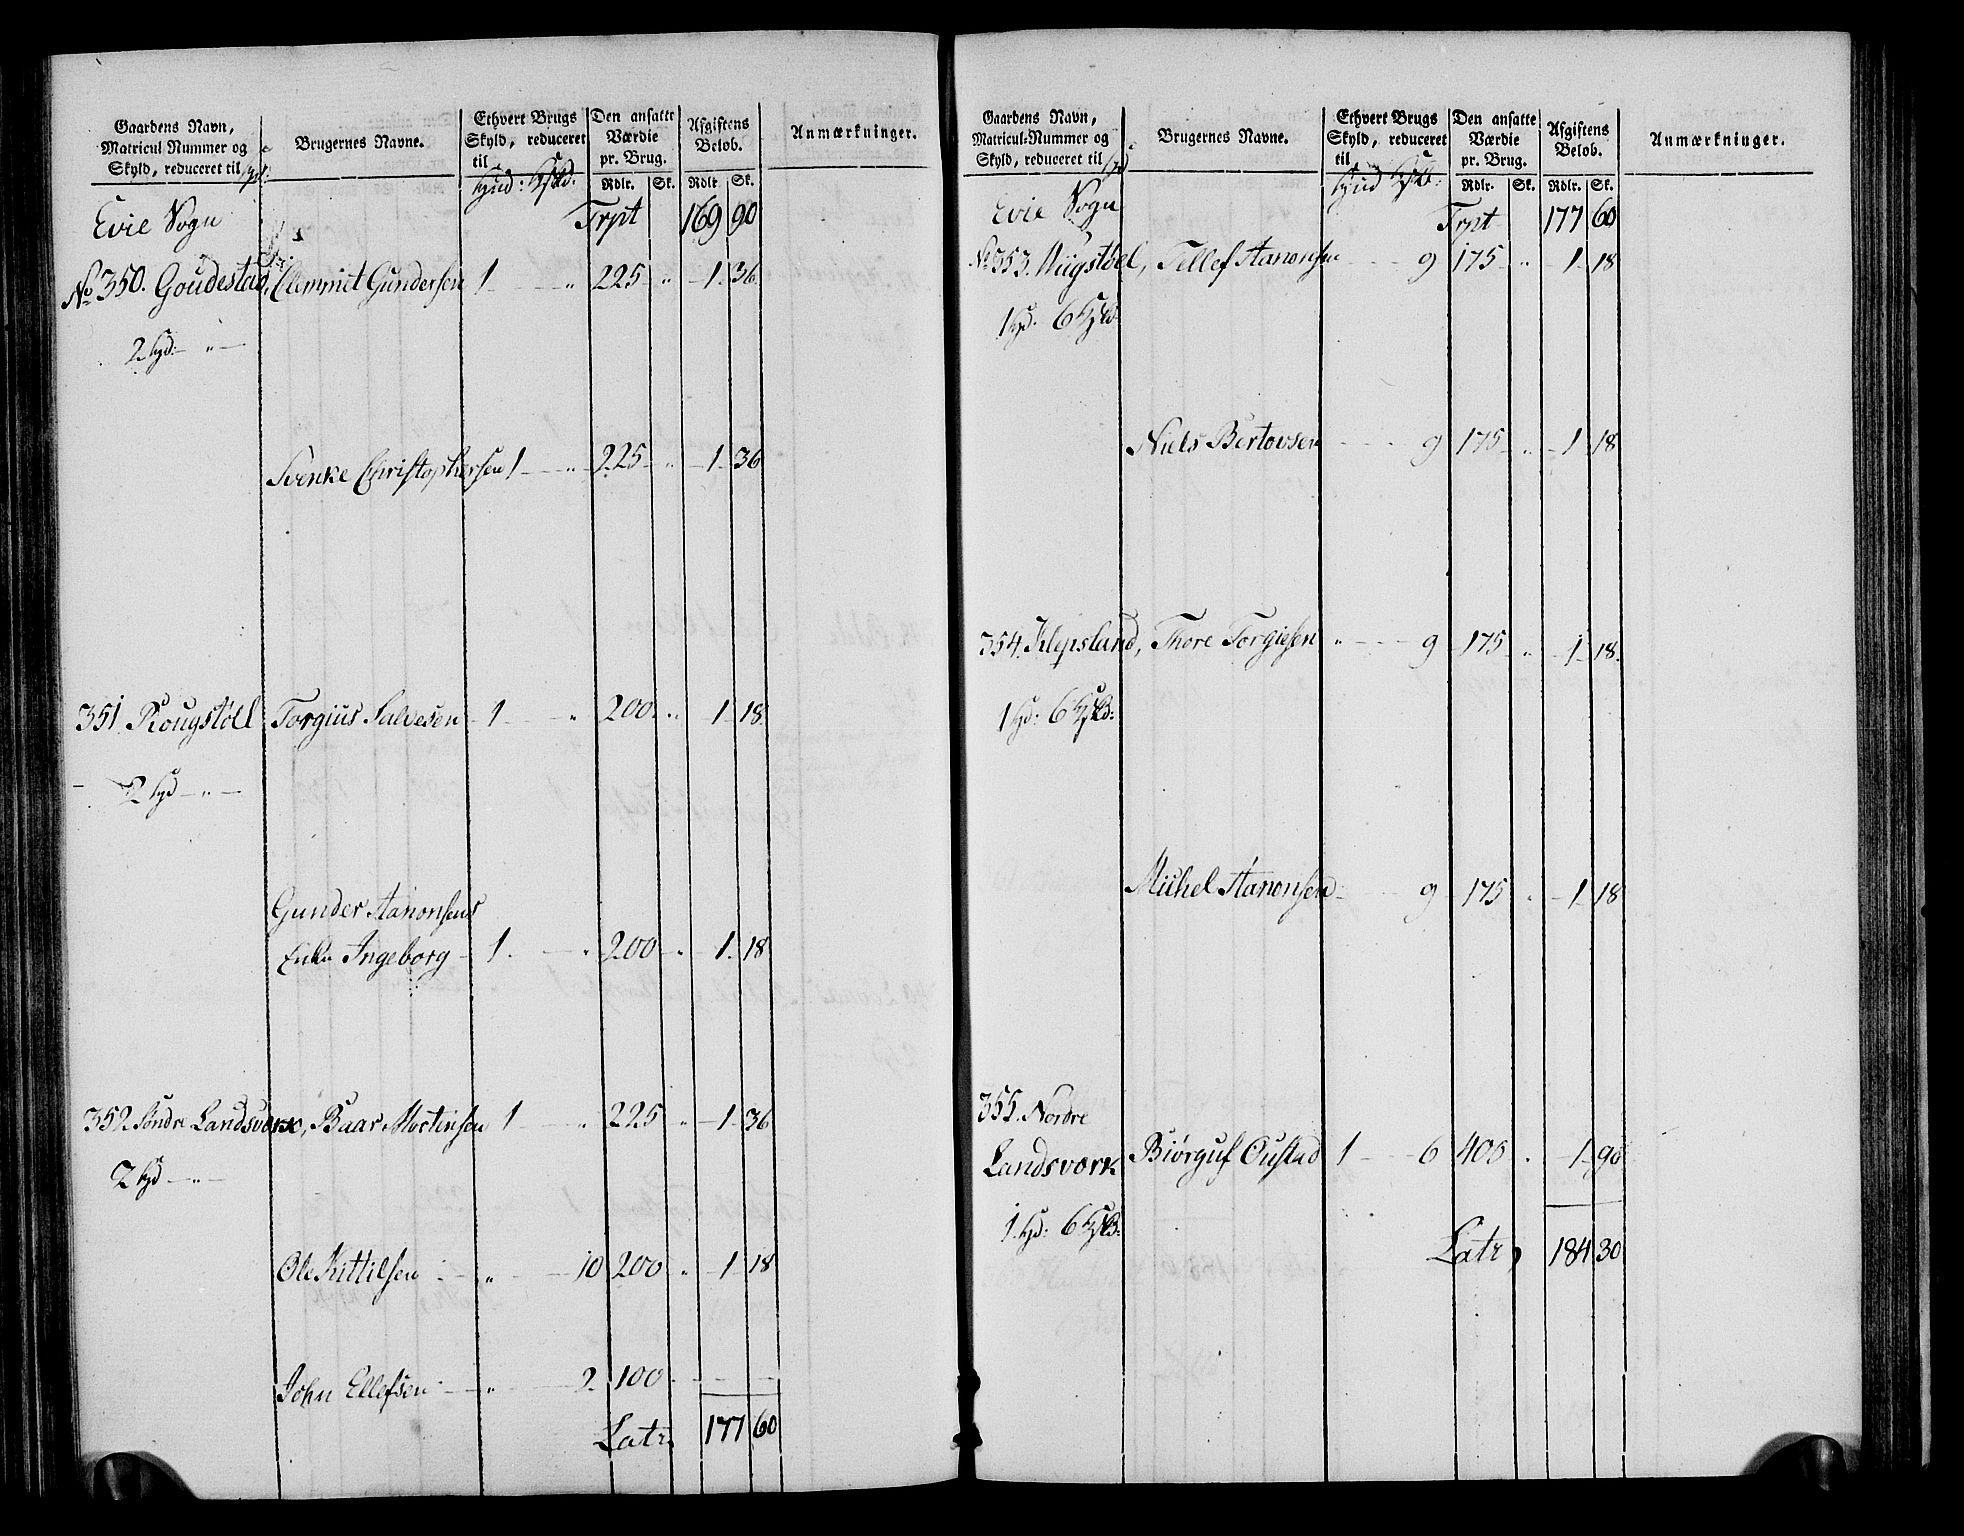 Gaardens Navn,
Matricul Nummer og
Skyld, reduceret til
Brugernes Navne.
Ethvert Brugs
Skyld, reduceret
til
Den ansatte
Værdie
pr. Brug.
Rdlr. Sk.
Afgiftens
Beløb.
Rdlr. Sk.
Anmærkninger.
Evie Sogn Trpt 169 90
No 350. Goudestad, Clemmet Gundersen 1 — „ 225 „ 1 36
2 hd: — „ —
Svenke Christophersen 1 — „ 225 „ 1 36
351 Rougstøll Torgius Salvesen 1 — „ 200 „ 1 18
2 hd — „ —
Gunder Aanonsens
Enke Ingeborg 1 — „ 200 „ 1 18
352 Søndre Landsværk, Baar Mortensen 1 — „ 225 „ 1 36
2 hd — „ —
Ole Kittilsen „ — 10 200 „ 1 18
John Ellefsen „ — 2 100 — — —
Latr 177 60
Gaardens Navn,
Matricul-Nummer og
Skyld, reduceret til
Brugernes Navne.
Ethvert Brugs
Skyld, reduceret
til
Den ansatte
Værdie
pr. Brug.
Rdlr. Sk.
Afgiftens
Beløb.
Rdlr. Sk.
Anmærkninger.
Evie Sogn Trpt 177 60
No 353. Tellef Aanonsen — 9 175 „ 1 18
1 hd: 6
Niels Bertovsen — 9 175 „ 1 18
354. Klepsland, Thore Torgiesen „ — 9 175 „ 1 18
1 hd: 6
Michel Aanonsen — 9 175 „ 1 18
355. Nordre
Landsværk Biørguf Oustad 1 — 6 400 „ 1 90
1 hd: 6
Latr 184 30